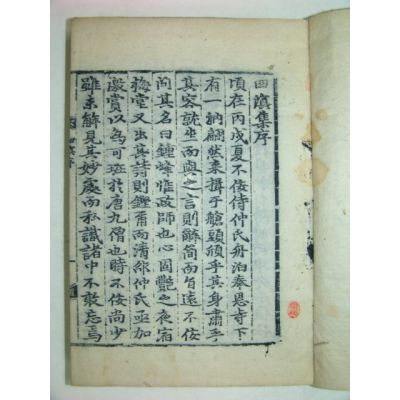 四溟集序
頃在丙戌夏不佞侍仲氏舟泊奉恩寺下
有一衲翩然來揖于艙頭頎乎其身肅乎
其容就坐而與之言則辭簡而旨遠不佞
問其名曰鍾峰惟政師也心固艷之夜宿
梅堂又出其詩則鏗爾而清邵仲氏亟加
激賞以為可班於唐九僧也時不佞尚少
雖未解見其妙處而私識諸中不敢忘焉